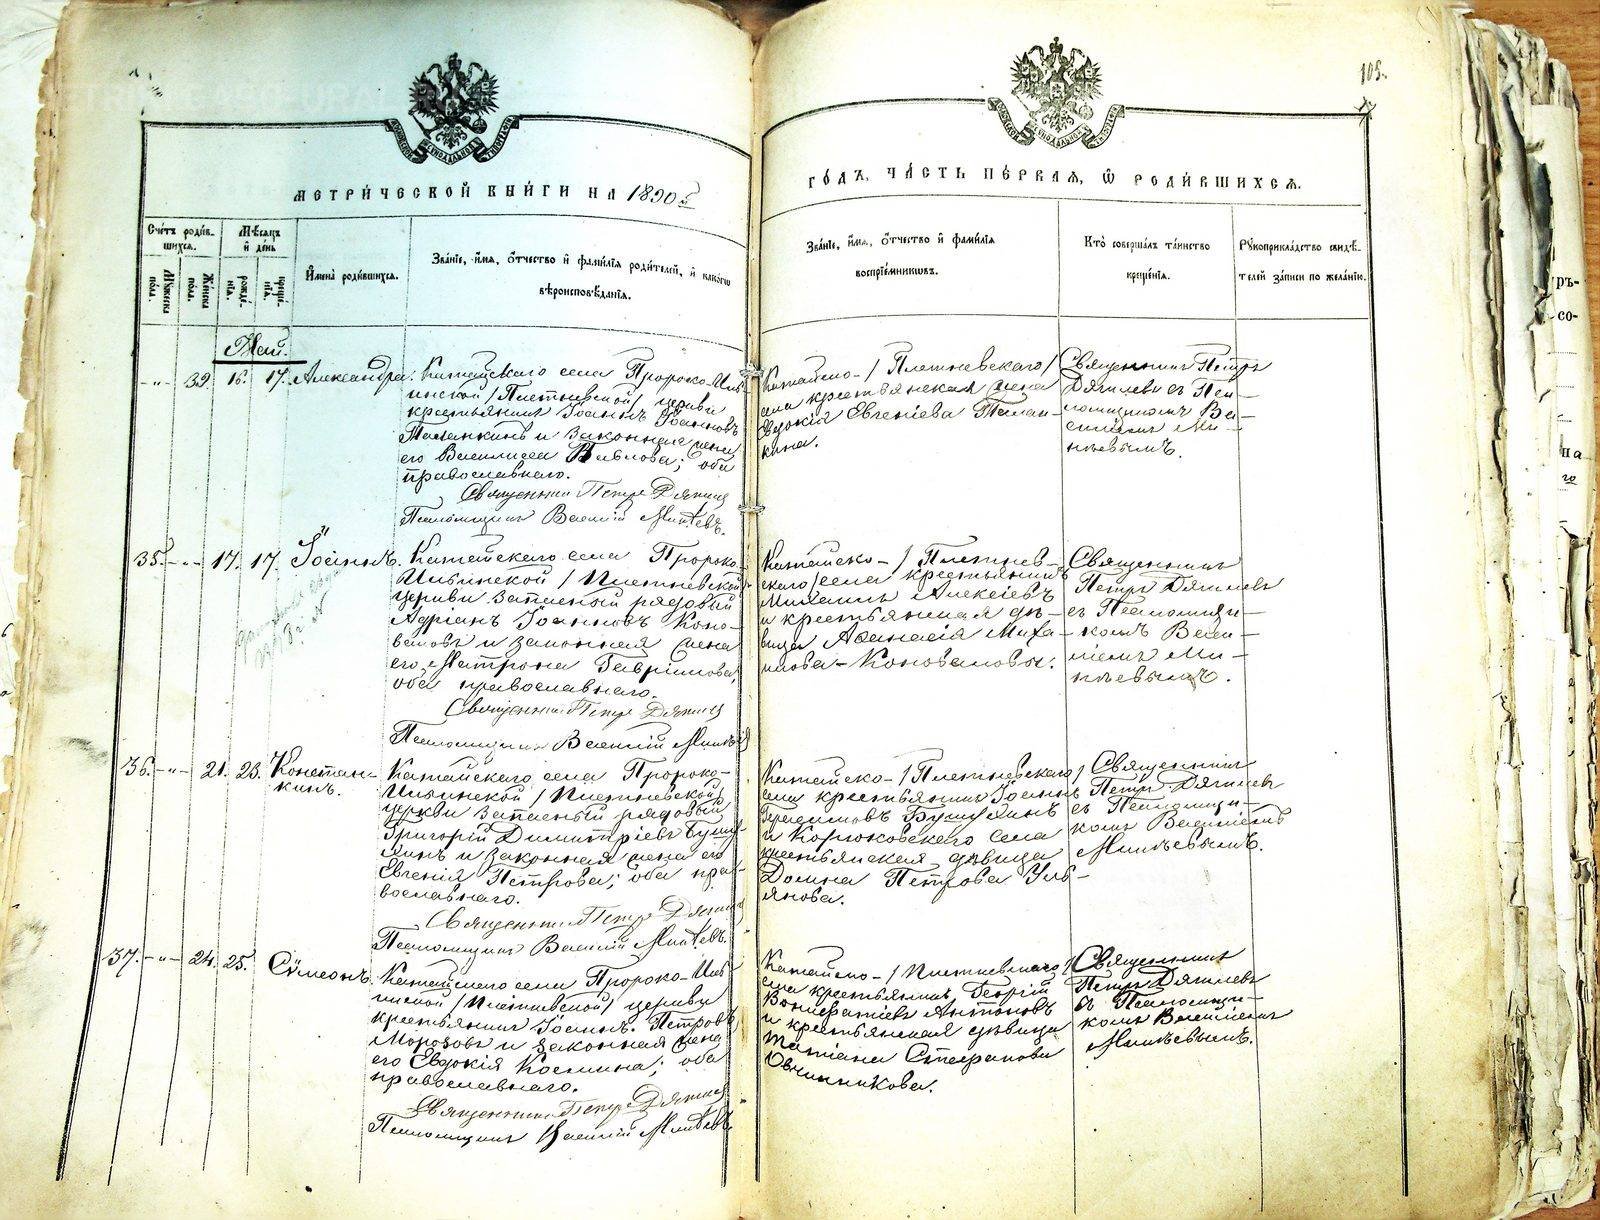 105.
МЕТРИЧЕСКОЙ КНИГИ НА 1890й
ГОДЪ, ЧАСТЬ ПЕРВАЯ, Ѡ РОДИВШИХСЯ.
Счетъ родив-
шихся.
Мѣсяцъ
и день
Мужеска
пола.
Женска
пола.
рожде-
нія.
креще-
нія.
Имена родившихся.
Званіе, имя, отчество и фамилія родителей, и какогѡ
вѣроисповѣданія.
Званіе, имя, отчество и фамилія
воспріемниковъ.
Кто совершалъ таинство
крещенія.
Рукоприкладство свидѣ-
телей записи по желанію.
Май.
-"- 39. 16. 17. Александра.
Катайскаго села Пророко-Иль-
инской /Плетневской/ церкви
крестьянинъ Іоаннъ Іоанновъ
и законная жена
его Василиса Павлова; оба
православнаго.
Священникъ Петръ Дягилев
Псаломщикъ Василій Минѣевъ.
Катайско-/Плетневскаго/
села крестьянская жена
Евдокія Евгеніева
кина.
Священникъ Петръ
Дягилевъ съ Пса-
ломщикомъ Ва-
силіемъ Ми-
нѣевымъ.
35. -"- 17. 17. Іоаннъ.
Катайскаго села Пророко-
Ильинской /Плетневской/
церкви запасный рядовый
Адріанъ Іоанновъ Коно-
валовъ и законная жена
его Матрона Гавриилова,
оба православнаго.
Священникъ Петръ Дягилев
Псаломщикъ Василій Минѣевъ
Катайско-/Плетнев-
скаго/ села крестьянинъ
Михаилъ Алексіевъ
и крестьянская дѣ-
вица Аѳанасія Миха-
илова-Коноваловы.
Священникъ
Петръ Дягилевъ
съ Псаломщи-
комъ Васи-
ліемъ Ми-
нѣевымъ.
36. -"- 21. 23. Констан-
тинъ.
Катайскаго села Пророко-
Ильинской /Плетневской/
церкви запасный рядовый
Григорій Димитріевъ Бушу-
янъ и законная жена его
Евгенія Петрова; оба пра-
вославнаго.
Священникъ Петръ Дягилев
Псаломщикъ Василій Минѣевъ.
Катайско-/Плетневскаго/
села крестьянинъ Іоаннъ
Герасимовъ Бушуянъ
и Корюковскаго села
крестьянская дѣвица
Домна Петрова Уль-
янова.
Священникъ
Петръ Дягилевъ
съ Псаломщи-
комъ Василіемъ
Минѣевымъ.
37. -"- 24. 25. Сѵмеонъ.
Катайскаго села Пророко-Иль-
инской /Плетневской/ церкви
крестьянинъ Іоаннъ Петровъ
Морозовъ и законная жена
его Евдокія Космина; оба
православнаго.
Священникъ Петръ Дягилев
Псаломщикъ Василій Минѣевъ
Катайско-/Плетневскаго/
села крестьянинъ Георгій
Вонифатіевъ Антоновъ
и крестьянская дѣвица
Татіана Стефанова
Овчинникова.
Священникъ
Петръ Дягилевъ
съ Псаломщи-
комъ Василіемъ
Минѣевымъ.